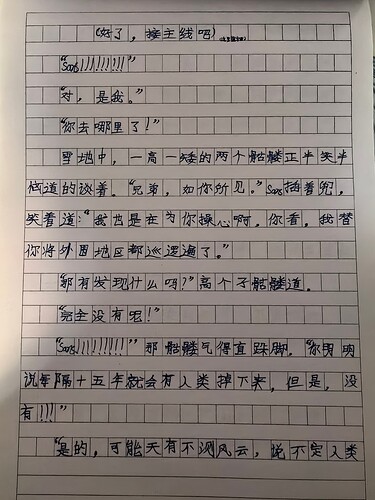 (好了，接主线吧)
“Sans!!!!!!!!!”
“对，是我。”
“你去哪里了！”
雪地中，一高一矮的两个骷髅正半笑半
恼道的谈着。“兄弟，如你所见。”Sans插着兜，
笑着道：“我也是在为你操心啊，你看，我替
你将外围地区都巡逻遍了。”
“那有发现什么吗？”高个子骷髅道。
“完全没有呢！”
“Sans!!!!!!!!!”那骷髅气得直跺脚，“你明明
说每隔十五年就会有人类掉下来，但是，没
有!!!”
“是的，可能天有不测风云，说不定人类